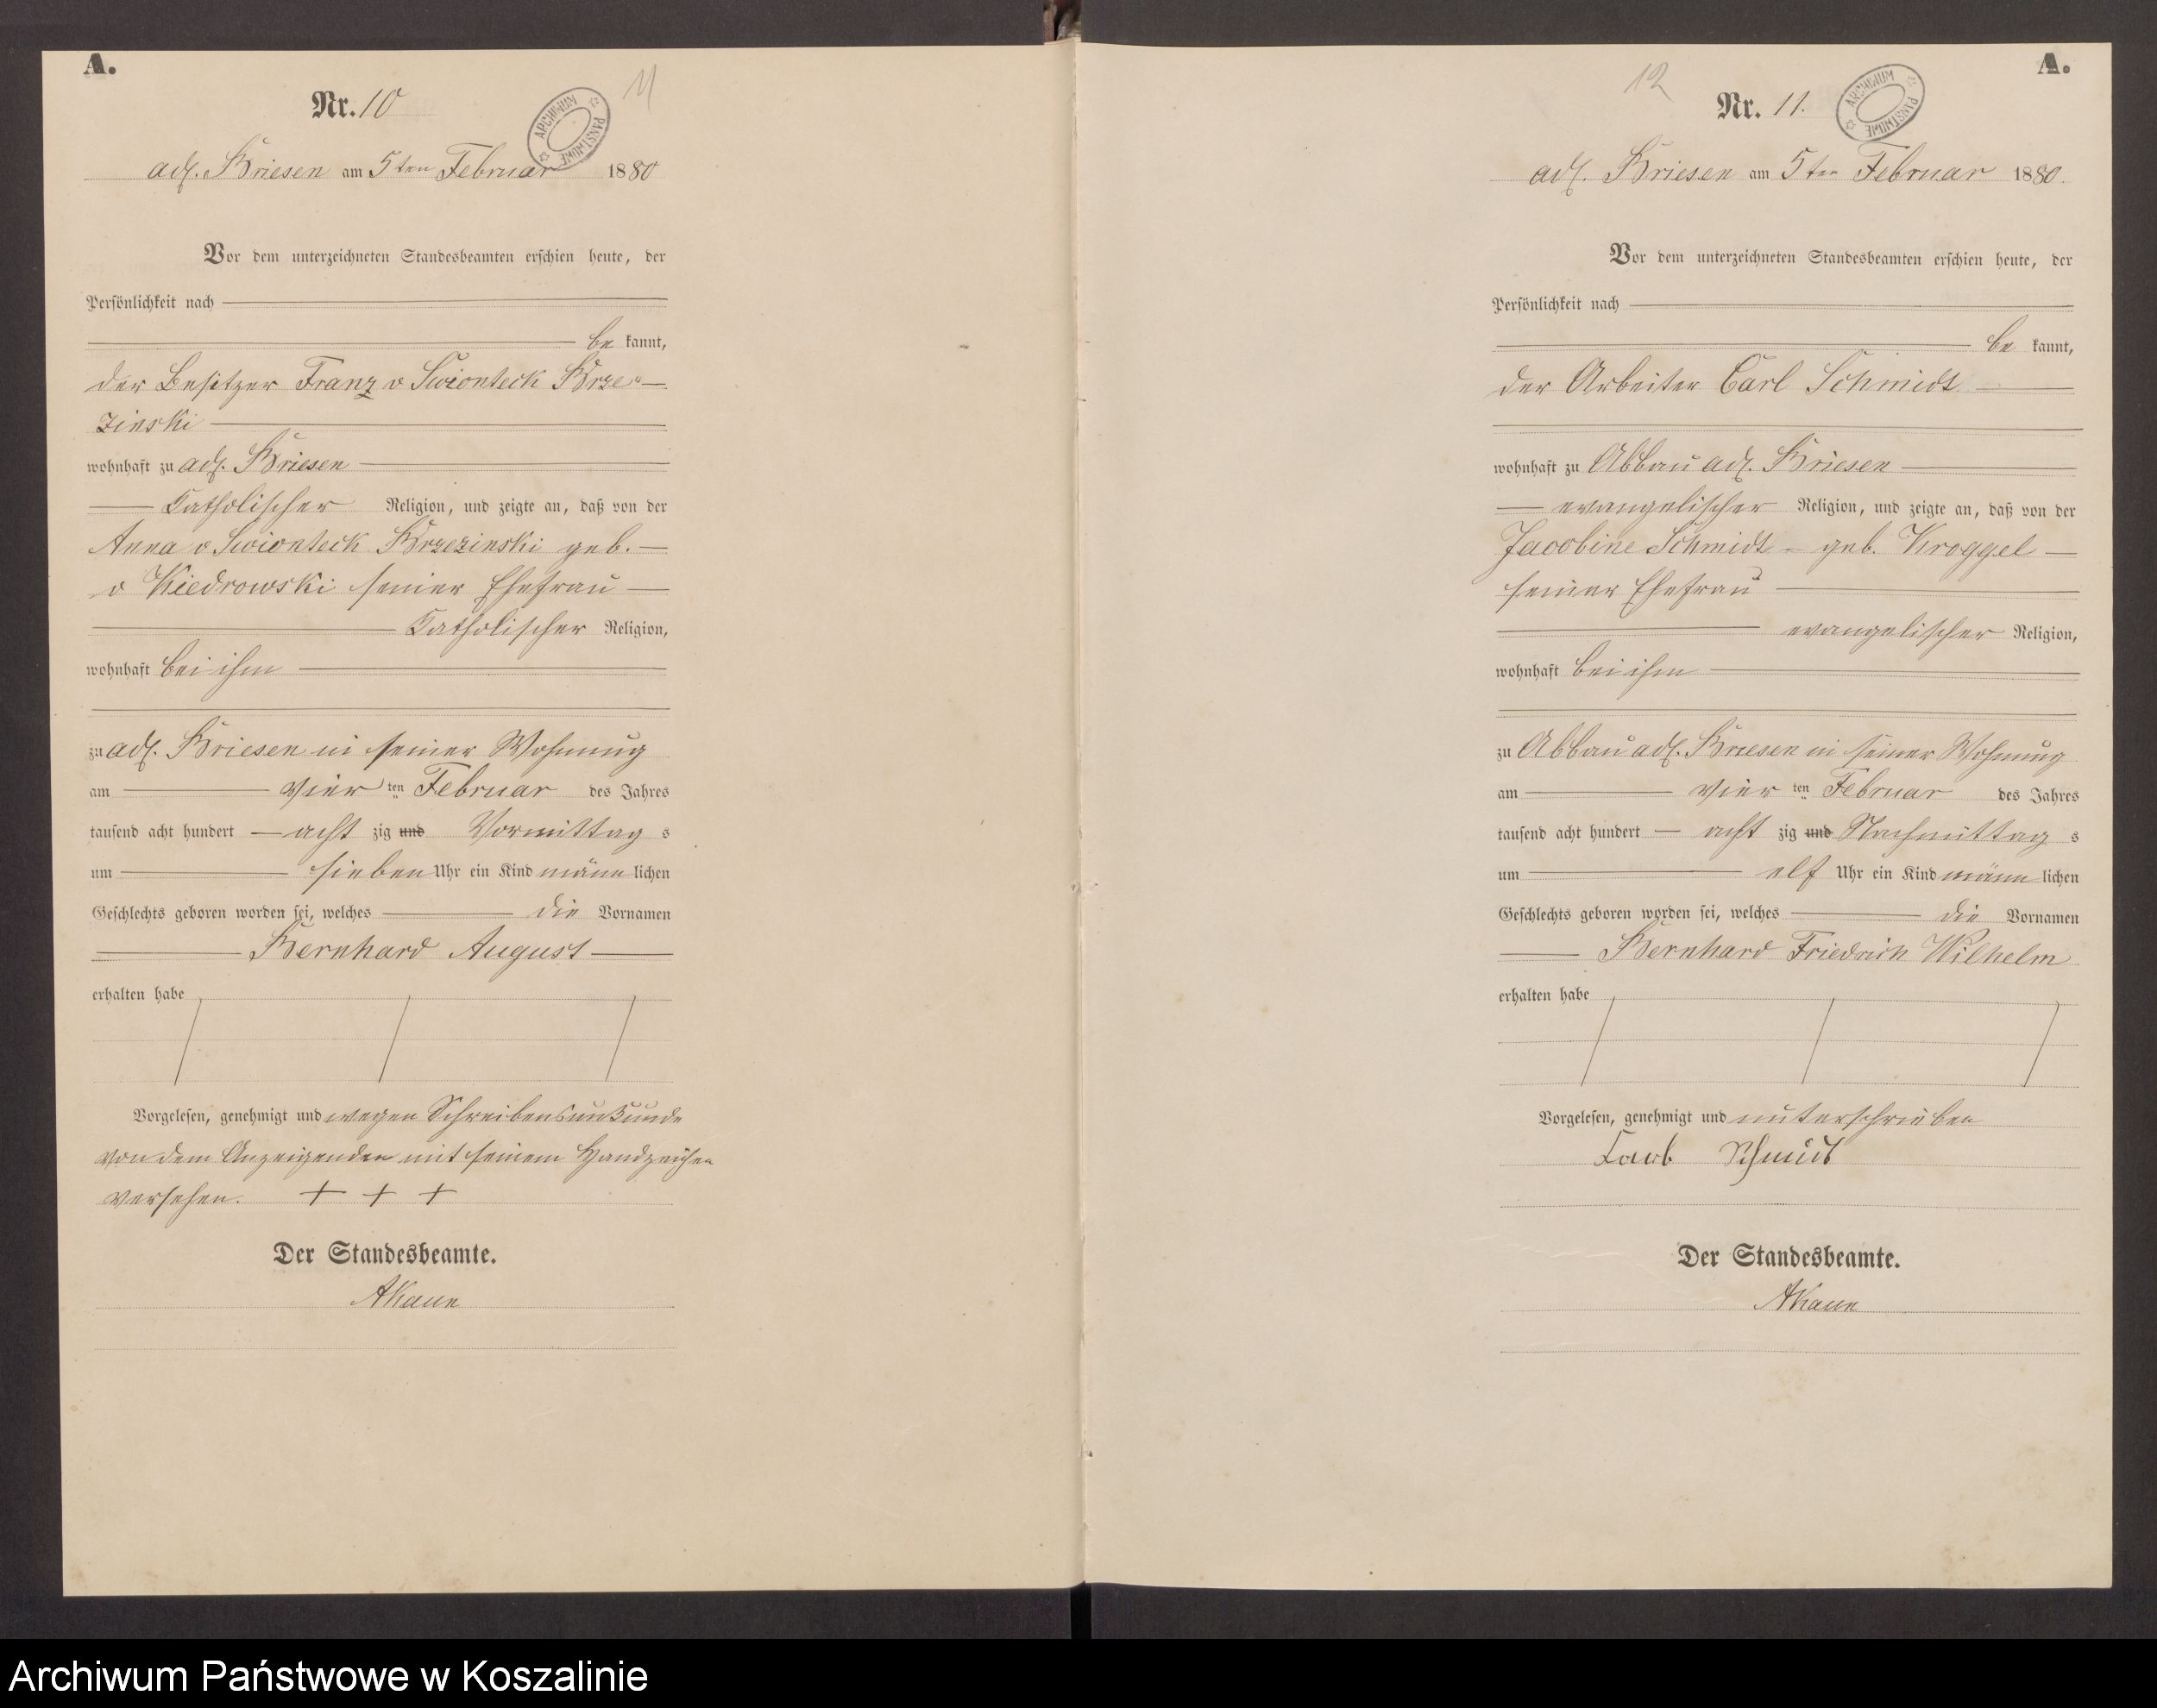 A.
Nr. 10
11
ARCHIWUM PAŃSTWOWE
adl. Briesen am 5ten Februar 1880
Vor dem unterzeichneten Standesbeamten erschien heute, der
Persönlichkeit nach
be kannt,
der Besitzer Franz v Swionteck Brze-
zinski
wohnhaft zu adl. Briesen
Catholischer Religion, und zeigte an, daß von der
Anna v Swionteck Brzezinski geb.
v Kiedrowski seiner Ehefrau
Catholischer Religion,
wohnhaft bei ihm
zu adl. Briesen in seiner Wohnung
am vier ten Februar des Jahres
tausend acht hundert acht zig und Vormittag s
um sieben Uhr ein Kind männ lichen
Geschlechts geboren worden sei, welches die Vornamen
Bernhard August
erhalten habe
Vorgelesen, genehmigt und wegen Schreibensunkunde
von dem Anzeigenden mit seinem Handzeichen
versehen. + + +
Der Standesbeamte.
A.
12
Nr. 11.
ARCHIWUM PAŃSTWOWE
adl. Briesen am 5ten Februar 1880.
Vor dem unterzeichneten Standesbeamten erschien heute, der
Persönlichkeit nach
be kannt,
der Arbeiter Carl Schmidt
wohnhaft zu Abbau adl. Briesen
evangelischer Religion, und zeigte an, daß von der
Jacobine Schmidt geb. Kroggel
seiner Ehefrau
evangelischer Religion,
wohnhaft bei ihm
zu Abbau adl. Briesen in seiner Wohnung
am vier ten Februar des Jahres
tausend acht hundert acht zig und Nachmittag s
um elf Uhr ein Kind männ lichen
Geschlechts geboren worden sei, welches die Vornamen
Bernhard Friedrich Wilhelm
erhalten habe
Vorgelesen, genehmigt und unterschrieben
Schmidt
Der Standesbeamte.
Archiwum Państwowe w Koszalinie